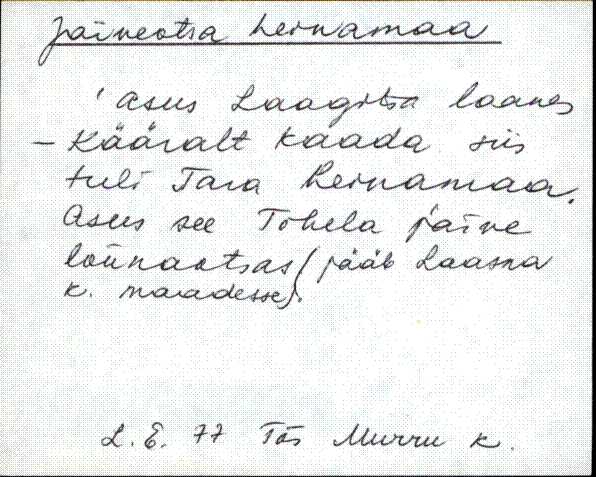 Järveotsa heinamaa
Asus Laagitsa laanes
– Kääralt kaada siis
tuli Tara heinamaa.
Asus see Tõhela järve
lõunaotsas (jääb Laasma
k. maadesse).
L. E. 77 Tõs Murru k.